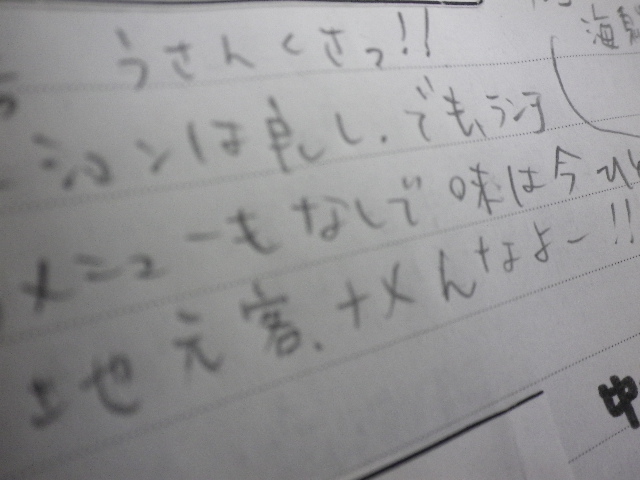 海鮮
うさんくさっ!!
ーションは良し.でも、ランチ
メニューもなしで味は今ひ
地元客.ナメんなよー!!
中